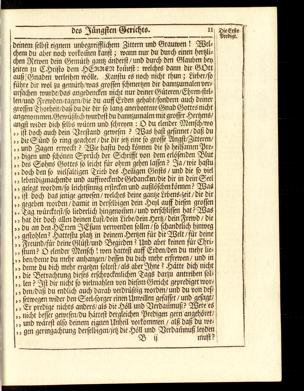 des Jüngsten Gerichts. 11
Die Erste
Predigt.
deinem selbst eignem unbegreifflichem Zittern und Grauwen! Wel-
chem du aber noch vorkommen kanst; wann nur du durch einen hertzli-
chen Rewen dein Gemüth gantz änderst/ und durch den Glauben bey
zeiten zu Christo dem HERREN komest: welches dann dir GOtt
auß Gnaden verleihen wölle. Kanstu es noch nicht thun; Lieber/so
führe dir wol zu gemüth/was grossen schmertzen dir dannzumalen ver-
ursachen wurde/das angedencken nicht nur deiner Güteren/Ehren-stel-
len/und Frewden-tagen/die du auff Erden gehabt/sondern auch deiner
grossen Thorheit/daß du die dir so lang anerbottene Gnad Gottes nicht
angenommen. Gewüßlich wurdest du dannzumalen mit grosser Hertzens/
angst wider dich selbst wüten und schreyen: O du elender Mensch/wo
,, ist doch auch dein Verstand gewesen? Was hast gesinnet/daß du
,, die Sünd so ring geachtet/ die dir jetz ein so grosse Ängst/Zittern/
,, und Zagen erweckt? Wie hastu doch können die so heilsamen Pre-
,, digen und schönen Sprüch der Schrifft von dem erlösenden Blut
,, des Sohns Gottes so leicht für ohren gehen lassen? Ja/wie hastu
,, doch den so vielfältigen Trieb des Heiligen Geists/und die so viel
,, lebendigmachende und aufferweckende Gedancken/die dir in dein Seel
,, gelegt worden/so leichtsinnig ersticken und außlöschen können? Was
,, ist doch das zwige gewesen/welches deine gantze Lebens-zeit/ die dir
,, gegeben worden/ damit in derselbigen dein Heyl auff diesen grossen
,, Tag würckest/so liederlich hingeworffen/ und verschlissen hat? Was
,, hat dir doch allen deinen Lust/dein Liebe/dein Hertz/dein Frewd/die
,, du an den HErren JEsum verwenden sollen/ so schandtlich hinweg
,, gestohlen? Hattestu platz in deinem Hertzen für die Welt/ für deine
,, Freund/für deine Glüst/ und Begirden? Und aber keinen für Chri-
,, stum? O elender Mensch! wen hattest auff Erden/den du mehr lie-
,, ben/deme du mehr anhangen/dessen du dich mehr erfrewen/ und in
,, deme du dich mehr ergetzen soltest/als aber Ihne? Hätte dich nicht
,, die Betrachtung dieses erschrocklichen Tags darzu antreiben sol-
,, len? Ist dir nicht so vielmahlen von diesem Gericht geprediget wor-
,, den/daß du endlich auch darab verdrüssig worden/ und du von des-
,, setwegen wider den Seelsorger einen Unwillen gefasset/ und gesagt/
,, Er predige nichts anders/ als die Höll und Verdamnuß? Were es
,, nicht besser gewesen/du hättest dergleichen Predigen gern angehöret/
,, und wärest also deinem eignen Urtheil vorkommen/ alß daß du we-
,, gen geringachtung derselbigen/jetz die Höll und Verdamnuß leyden
B ij must?